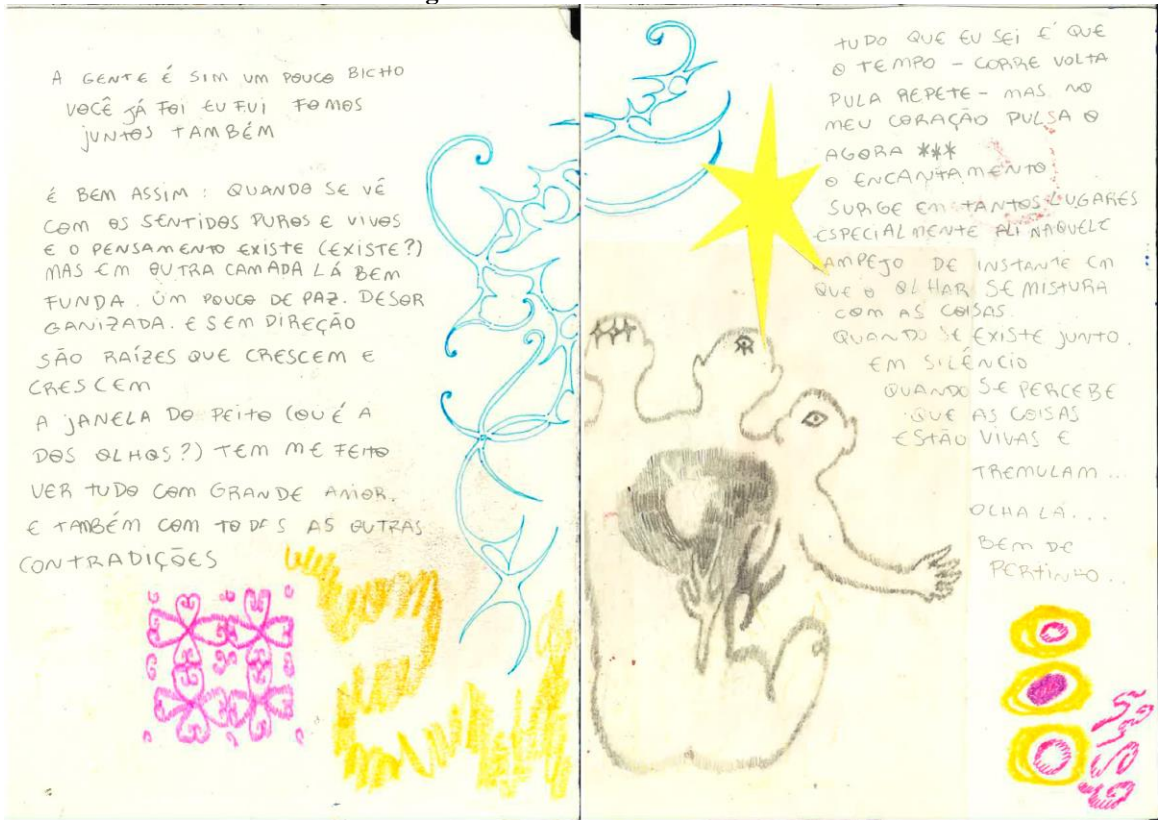 A GENTE É SIM UM POUCO BICHO
VOCÊ JÁ FOI EU FUI FOMOS
JUNTOS TAMBÉM
É BEM ASSIM: QUANDO SE VÊ
COM OS SENTIDOS PUROS E VIVOS
E O PENSAMENTO EXISTE (EXISTE?)
MAS EM OUTRA CAMADA LÁ BEM
FUNDA. UM POUCO DE PAZ. DESOR
GANIZADA. E SEM DIREÇÃO
SÃO RAÍZES QUE CRESCEM E
CRESCEM
A JANELA DO PEITO (OU É A
DOS OLHOS?) TEM ME FEITO
VER TUDO COM GRANDE AMOR.
E TAMBÉM COM TODAS AS OUTRAS
CONTRADIÇÕES
TUDO QUE EU SEI É QUE
O TEMPO – CORRE VOLTA
PULA REPETE – MAS NO
MEU CORAÇÃO PULSA O
AGORA ***
O ENCANTAMENTO
SURGE EM TANTOS LUGARES
ESPECIALMENTE ALI NAQUELE
LAMPEJO DE INSTANTE EM
QUE O OLHAR SE MISTURA
COM AS COISAS.
QUANDO SE EXISTE JUNTO.
EM SILÊNCIO
QUANDO SE PERCEBE
QUE AS COISAS
ESTÃO VIVAS E
TREMULAM...
OLHA LÁ...
BEM DE
PERTINHO...